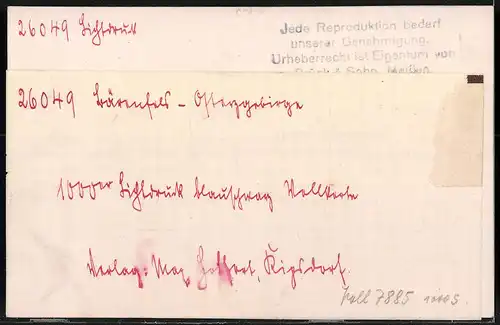 26049 Lichtdruck
Jede Reproduktion bedarf
unserer Genehmigung.
Urheberrecht ist Eigentum von
Brück & Sohn, Meißen
26049 Bärenfels - Osterzgebirge
1000er Lichtdruck blauschwarz Vollkarte
Verlag: Max Kipsdorf.
7885